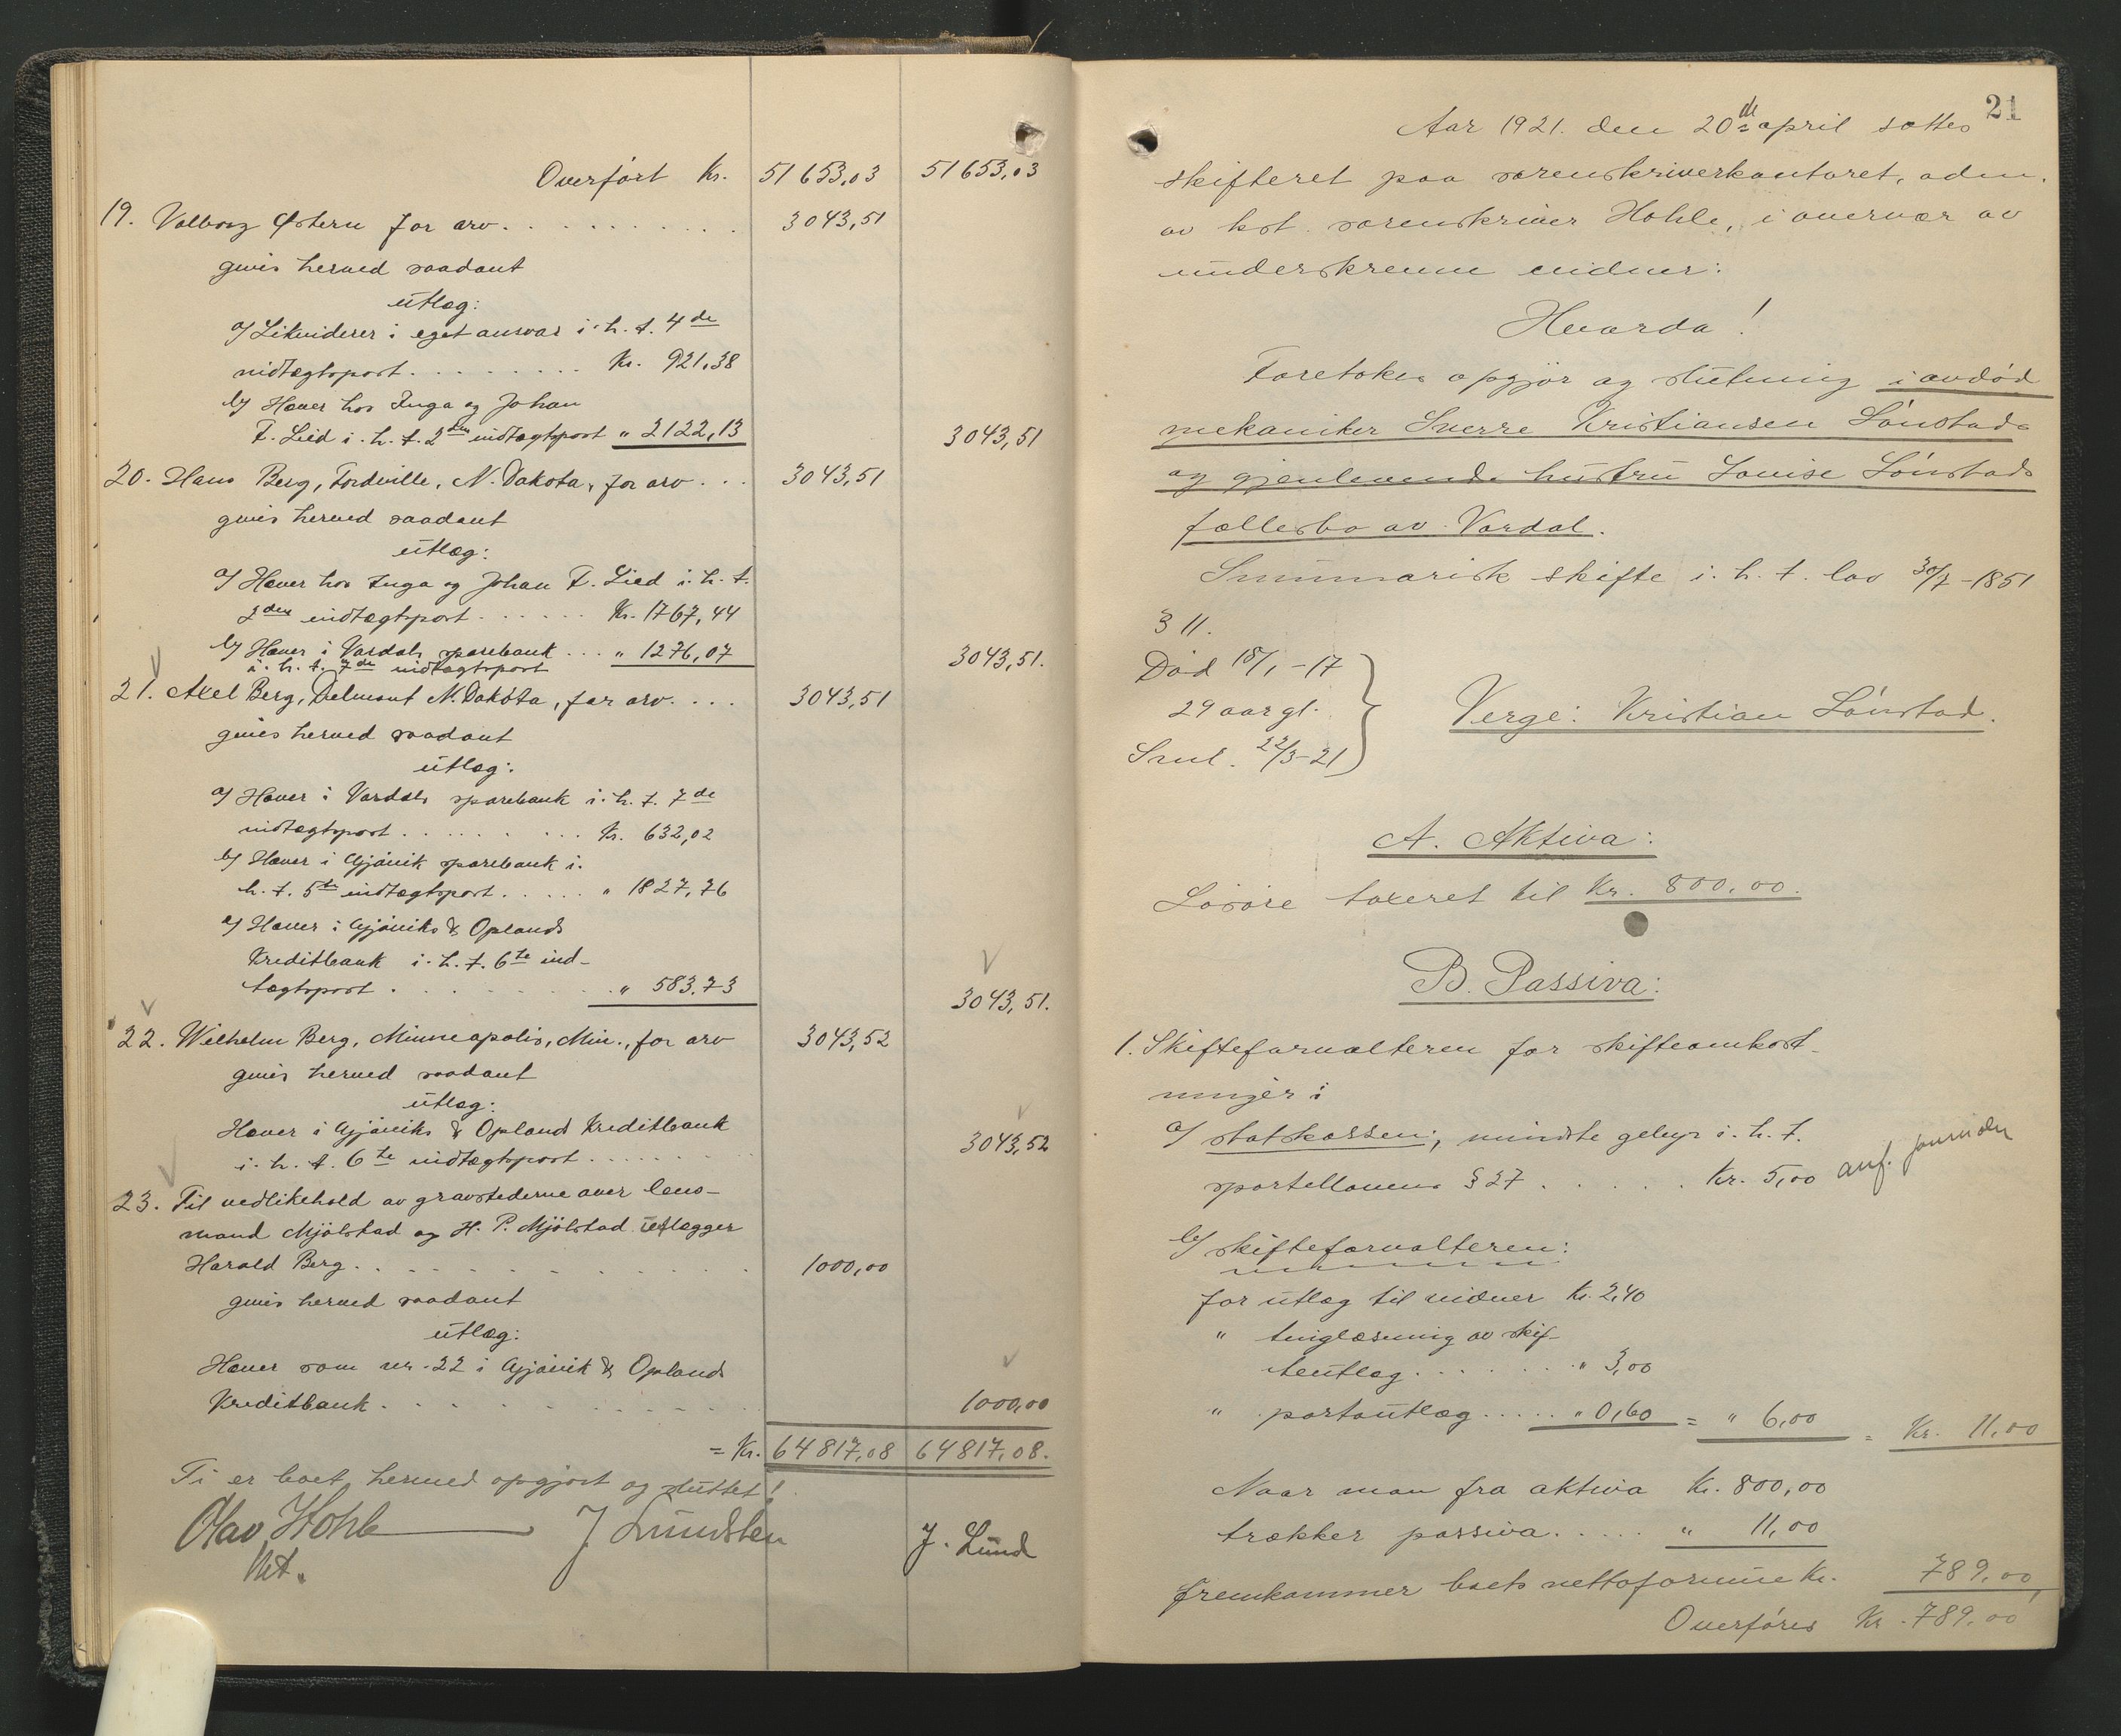 Overført Kr. 51653,03 51653,03
19. Valborg Østern for arv. . . . . . . . . . . 3043,51
givis herved saadant
utlæg:
a/ Likviderer i eget ansvar i. h. t. 4de
indtægtspost . . . . . . . . . Kr. 921,38
b/ Haver hos Inga og Johan
F. Lied i. h. t. 2den indtægtspost " 2122,13 3043,51
20. Hans Berg, Fordville, N. Dakota, for arv . . . 3043,51
givis herved saadant
utlæg:
a/ Haver hos Inga og Johan F. Lied i. h. t.
2den indtægtspost . . . . . . Kr. 1767,44
b/ Haver i Vardals sparebank . . . " 1276,07 3043,51.
i. h. t. 7de indtægtspost
21. Axel Berg, Delmont N. Dakota, for arv. . . . 3043,51
givis herved saadant
utlæg:
a/ Haver i Vardals sparebank i. h. t. 7de
indtægtspost . . . . . . . . . Kr. 632,02
b/ Haver i Gjøvik sparebank i.
h. t. 5te indtægtspost . . . . . " 1827,76
c/ Haver i Gjøviks & Oplands
Kreditbank i. h. t. 6te ind-
tægtspost . . . . . . . . . " 583,73 3043,51.
22. Wilhelm Berg, Minneapolis, Min., for arv 3043,52
givis herved saadant
utlæg:
Haver i Gjøviks & Opland Kreditbank
i. h. t. 6te indtægtspost . . . . . . . . 3043,52
23. Til vedlikehold av gravstederne over lens-
mand Mjølstad og H. P. Mjølstad utlægger
Harald Berg . . . . . . . . . . . . 1000,00
givis herved saadant
utlæg:
Haver som nr. 22 i Gjøvik & Oplands
Kreditbank . . . . . . . . . . . . 1000,00
= Kr. 64817,08 64817,08.
Ti er boet herved opgjort og sluttet!
Olav Hohle J. Lundsten J. Lund
kst.
21
Aar 1921. den 20de april sattes
skifteret paa sorenskriverkontoret, adm.
av kst. sorenskriver Hohle, i overvær av
underskrevne vidner:
Hvorda!
Foretokes opgjør og slutning i avdød
mekaniker Sverre Kristiansen Lønstads
og gjenlevende hustru Louise Lønstads
fællesbo av Vardal.
Summarisk skifte i. h. t. lov 30/7-1851
§ 11.
Død 18/1-17
29 aar gl.
Sml. 22/3-21
Verge: Kristian Lønstad.
A. Aktiva:
Løsøre taxeret til Kr. 800,00.
B. Passiva:
1. Skifteforvalteren for skifteomkost-
ninger i
a/ statskassen; mindste gebyr i. h. t.
sportellovens § 27 . . . . . Kr. 5,00 anf.
b/ skifteforvalteren:
for utlæg til vidner Kr. 2,40
" tinglæsning av skif-
teutlæg . . . . . . . " 3,00
" portoutlæg . . . . . " 0,60 = " 6,00 = Kr. 11,00
Naar man fra aktiva Kr. 800,00
trækker passiva . . . . . " 11,00
fremkommer boets nettoformue Kr. 789,00
Overføres Kr. 789,00